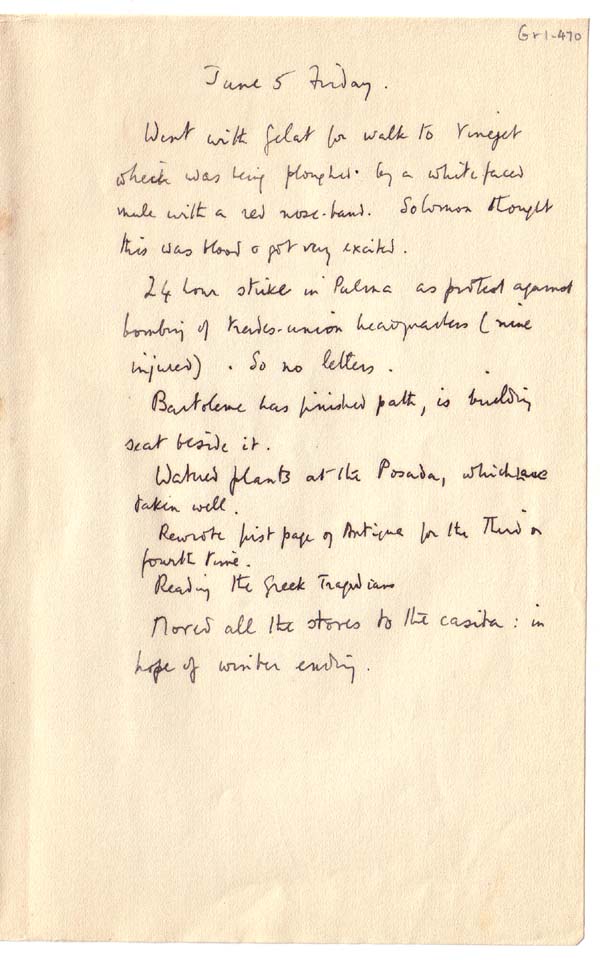 Gr1-470
June 5 Friday.
Went with Gelat for walk to Vinejet
which was being ploughed by a white faced
mule with a red nose-band. Solomon thought
this was blood & got very excited.
24 hour strike in Palma as protest against
bombing of trades-union headquarters (nine
injured). So no letters.
Bartolome has finished path, is building
seat beside it.
Watered plants at the Posada, which have
taken well.
Rewrote first page of Antigua for the third or
fourth time.
Reading the Greek Tragedians
Moved all the stores to the casita: in
hope of winter ending.